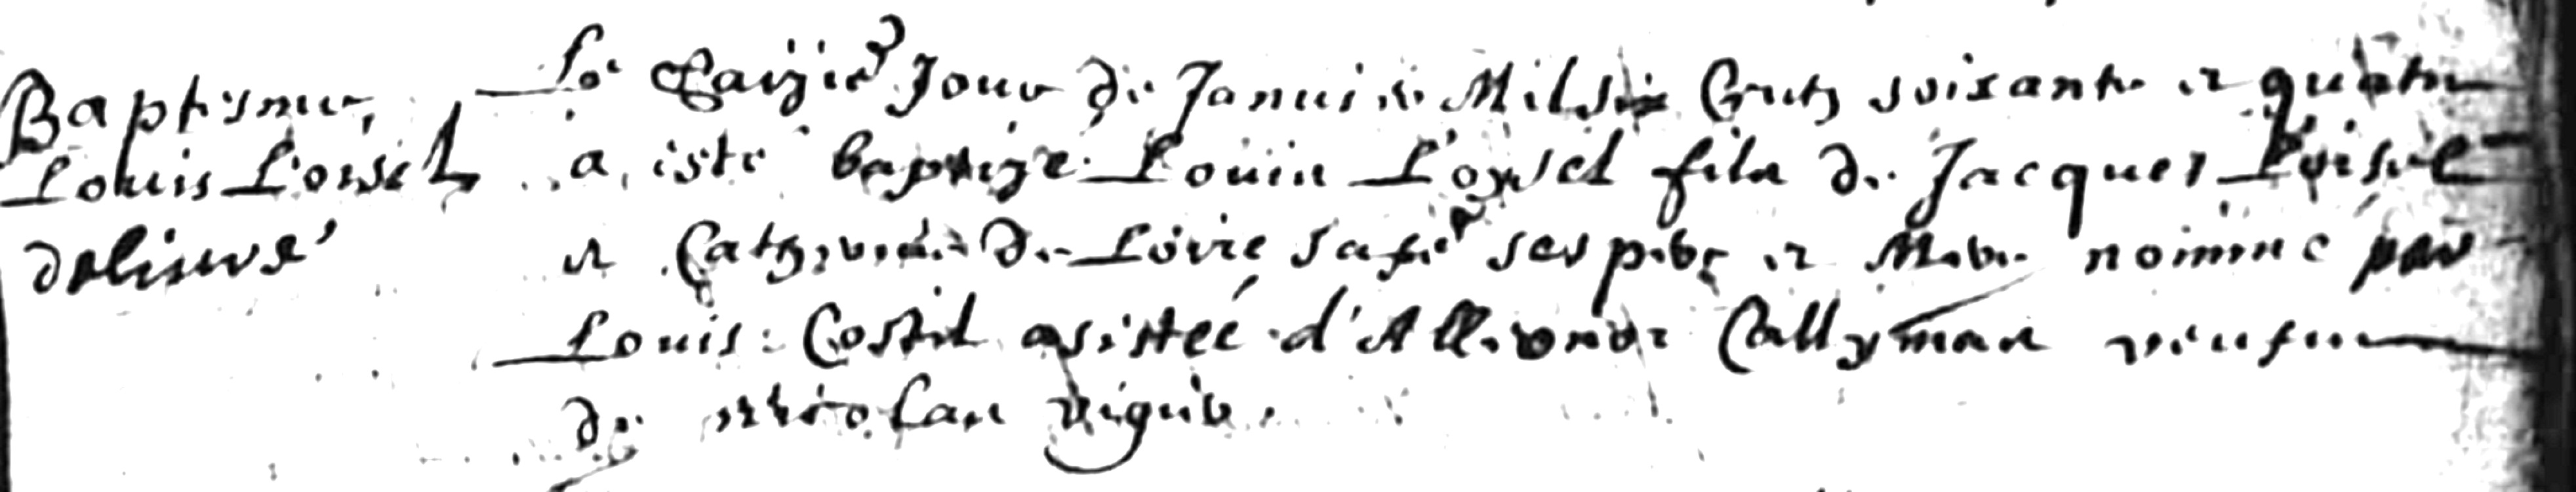 Baptesme,
Louis Loisel
deliuré
Le Saizie Jour de Januier Mil six Centz soixante et quatre
a esté baptizé Louis Loysel filz de Jacques Loisel
et Catherine de Loire sa fe ses pere et Mere nommé par
Louis Costil asistéé d'Allienor Callyman veufue
de Nicolas viguer